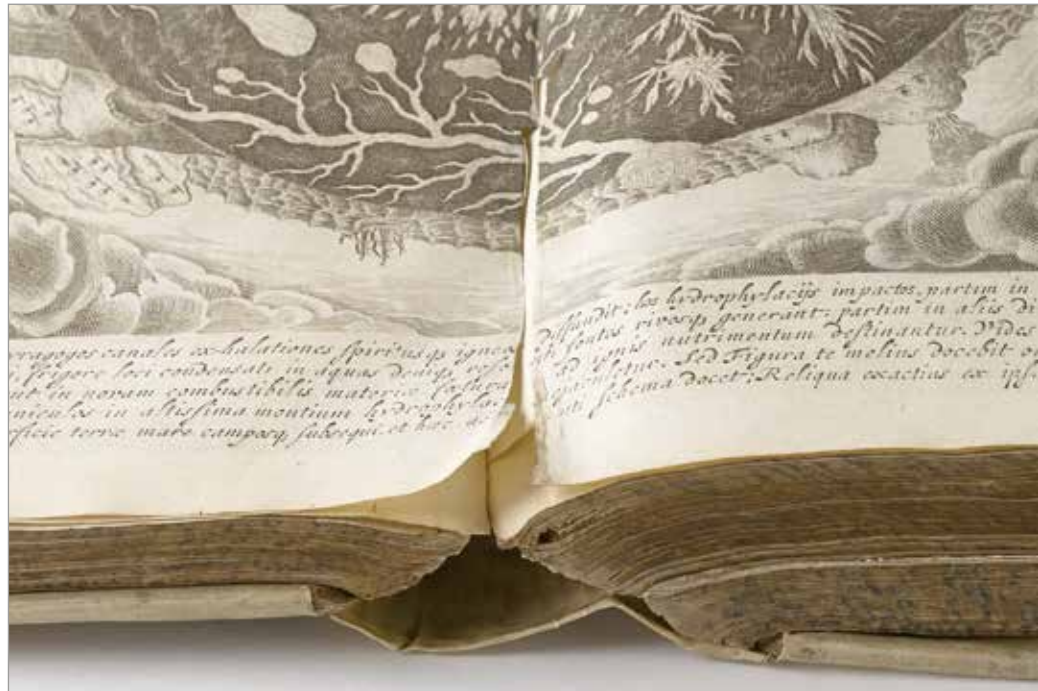 eragogos canales exhalationes spiritusq, igneo
frigore loci condensati in aquas deniq, reso
nt in novam combustibilis materiæ
niculos in altissima montium hydrophylac
erficie terræ mare camposq, subsequi, et hac de
diffundit: hos hydrophylacijs impactos, partim in
ubi fontes rivosq, generant: partim in alijs di
ad ignis nutrimentum destinantur. Vides
Sed Figura te melius docebit
uti schema docet: Reliqua exactius ex ips